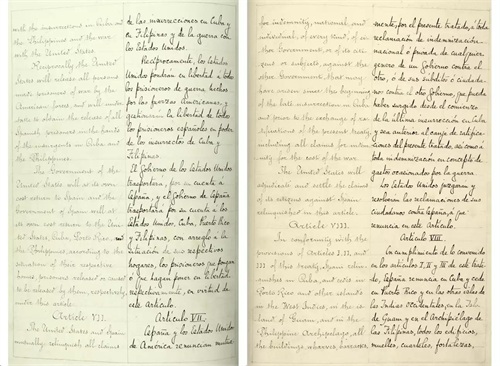 with the insurrections in Cuba and
the Philippines and the war
with the United States.
Reciprocally the United
States will release all persons
made prisoners of war by the
American forces, and will under-
take to obtain the release of all
Spanish prisoners in the hands
of the insurgents in Cuba and
the Philippines.
The Government of the
United States will at its own
cost return to Spain and the
Government of Spain will at
its own cost return to the Uni-
ted States, Cuba, Porto Rico, and
the Philippines, according to the
situation of their respective
homes, prisoners released or caused
to be released by them, respectively,
under this article.
Article VII.
The United States and Spain
mutually relinquish all claims
de las insurrecciones en Cuba y
en Filipinas y de la guerra con
los Estados Unidos.
Recíprocamente, los Estados
Unidos pondrán en libertad á todos
los prisioneros de guerra hechos
por las fuerzas Americanas, y
gestionarán la libertad de todos
los prisioneros españoles en poder
de los insurrectos de Cuba y
Filipinas.
El Gobierno de los Estados Unidos
trasportará, por su cuenta á
España, y el Gobierno de España
trasportará por su cuenta á los
Estados Unidos, Cuba, Puerto Rico
y Filipinas, con arreglo á la
situacion de sus respectivos
hogares, los prisioneros que pongan
ó que hagan poner en libertad
respectivamente, en virtud de
este Artículo.
Artículo VII.
España y los Estados Unidos
de América renuncian mutua-
for indemnity, national and
individual, of every kind, of ei-
ther Government, or of its citi-
zens or subjects, against the
other Government, that may
have arisen since the beginning
of the late insurrection in Cuba
and prior to the exchange of ra-
tifications of the present treaty,
including all claims for indem-
nity for the cost of the war.
The United States will
adjudicate and settle the claims
of its citizens against Spain
relinquished in this article.
Article VIII.
In conformity with the
provisions of Articles I, II, and
III of this treaty, Spain relin-
quishes in Cuba, and cedes in
Porto Rico and other islands
in the West Indies, in the is-
land of Guam, and in the
Philippine Archipelago, all
the buildings, wharves, barracks,
mente, por el presente tratado, á toda
reclamacion de indemnizacion
nacional ó privada, de cualquier
género de un Gobierno contra el
otro, ó de sus súbditos ó ciudada-
nos contra el otro Gobierno, que pueda
haber surgido desde el comienzo
de la última insurreccion en Cuba
y sea anterior al canje de ratifica-
ciones del presente tratado, así como á
toda indemnizacion en concepto de
gastos ocasionados por la guerra.
Los Estados Unidos juzgarán y
resolverán las reclamaciones de sus
ciudadanos contra España, á que
renuncia en este Artículo.
Artículo VIII.
En cumplimiento de lo convenido
en los artículos I, II y III de este trata-
do, España renuncia en Cuba y cede
en Puerto Rico y en las otras islas de
las Indias Occidentales, en la Isla
de Guam y en el Archipiélago de
las Filipinas, todos los edificios,
muelles, cuarteles, fortalezas,